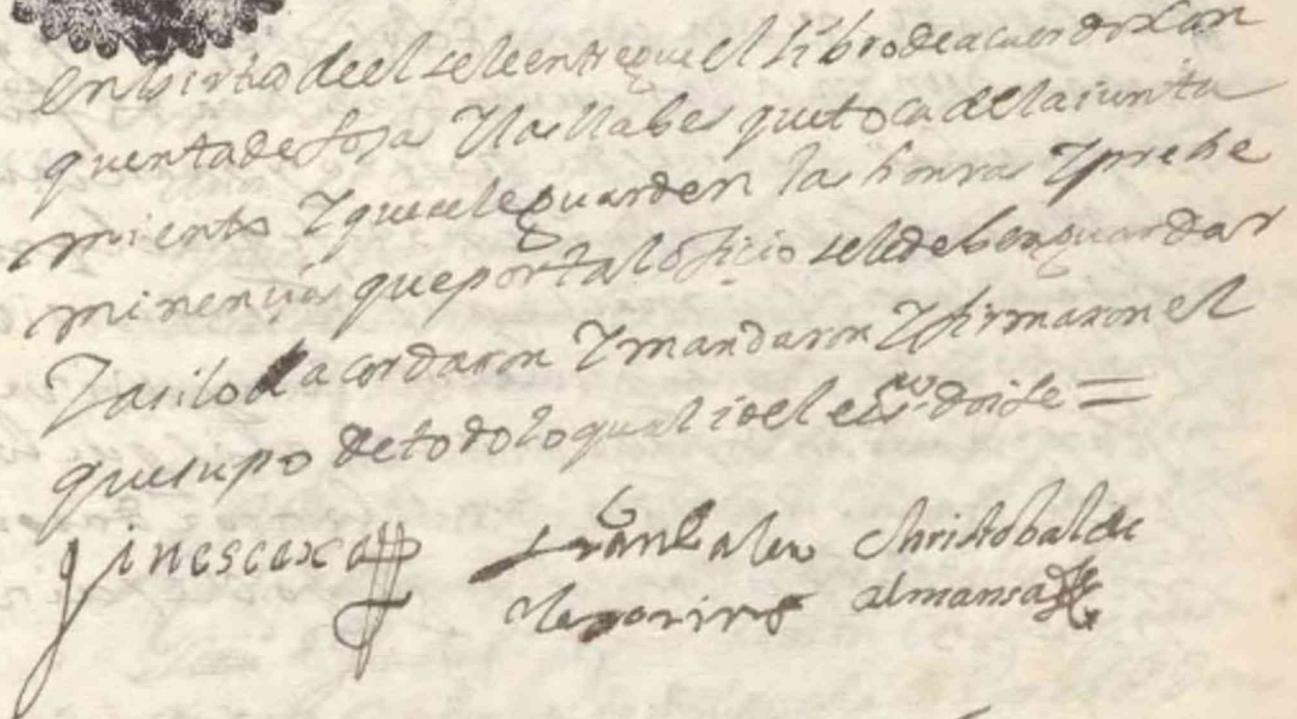 en birtud de el se le entregue el libro de acuerdos con
quenta de foja Y las llabes que toca de la iunta
miento Y que se le guarden las honras Y prehe
minencias que por tal oficio se le deben guardar
Y asi lo acordaron Y mandaron Y firmaron el
que supo de todo lo qual io el essno doi fe =
gines caxa Christobal de
almansa